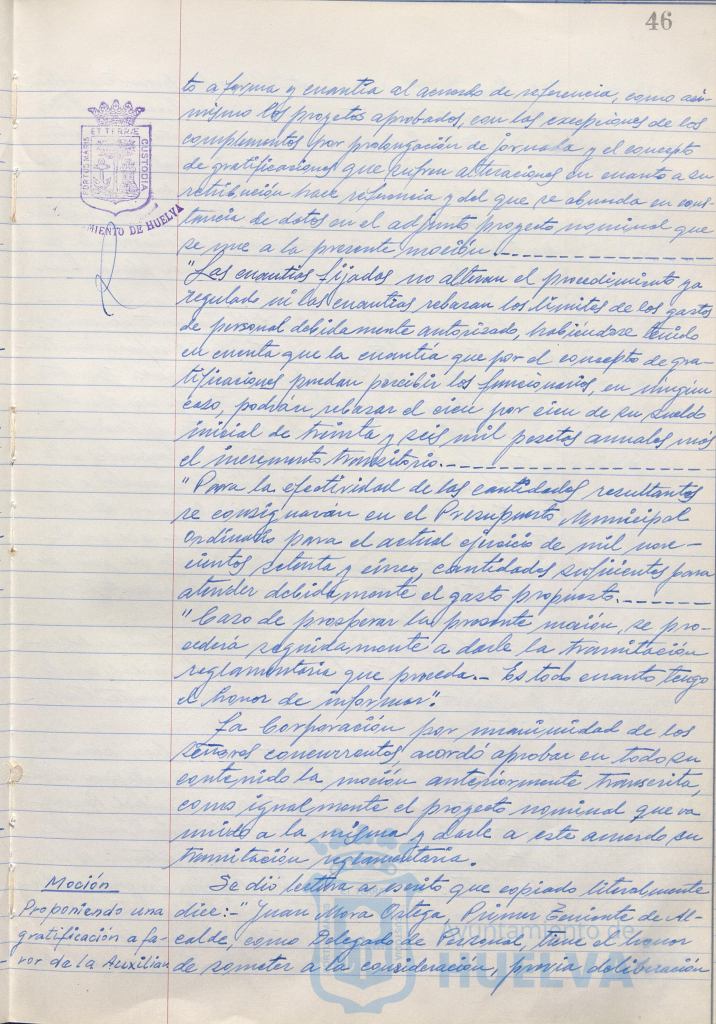 46
to a forma y cuantía al acuerdo de referencia, como asi-
mismo los proyectos aprobados, con las excepciones de los
complementos por prolongación de jornada y el concepto
de gratificaciones que sufren alteraciones en cuanto a su
retribución hace referencia y del que se abunda en cons-
tancia de datos en el adjunto proyecto nominal que
se une a la presente moción.
"Las cuantías fijadas no alteran el procedimiento ya
regulado ni las cuantías rebasan los límites de los gastos
de personal debidamente autorizado, habiéndose tenido
en cuenta que la cuantía que por el concepto de gra-
tificaciones puedan percibir los funcionarios, en ningún
caso, podrán rebasar el cien por cien de su sueldo
inicial de treinta y seis mil pesetas anuales más
el incremento transitorio.-
"Para la efectividad de las cantidades resultantes
se consignarán en el Presupuesto Municipal
Ordinario para el actual ejercicio de mil nove-
cientos setenta y cinco, cantidades suficientes para
atender debidamente el gasto propuesto.
"Caso de prosperar la presente moción, se pro-
cederá seguidamente a darle la tramitación
reglamentaria que proceda.- Es todo cuanto tengo
el honor de informar".
La Corporación por unanimidad de los
señores concurrentes, acordó aprobar en todo su
contenido la moción anteriormente transcrita,
como igualmente el proyecto nominal que va
unido a la misma y darle a este acuerdo su
tramitación reglamentaria.
Moción
Proponiendo una
gratificación a fa-
vor de la Auxiliar
Se dió lectura a escrito que copiado literalmente
dice:- "Juan Mora Ortega, Primer Teniente de Al-
calde, como Delegado de Personal, tiene el honor
de someter a la consideración, previa deliberación
PORTUS MARIS
ET TERRÆ
CUSTODIA
MIENTO DE HUELVA
Ayuntamiento de
HUELVA